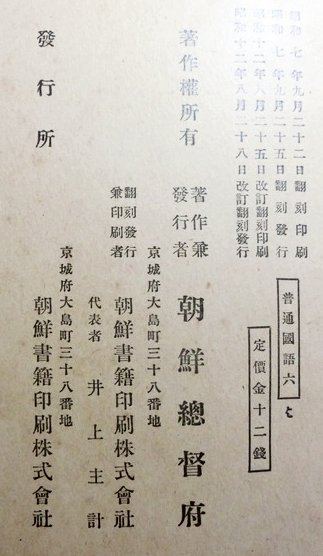 昭和七年九月二十二日翻刻印刷
昭和七年九月二十五日翻刻發行
昭和十二年八月二十五日改訂翻刻印刷
昭和十二年八月二十八日改訂翻刻發行
普通國語六
定價金十二錢
著作權所有
著作兼發行者
朝鮮總督府
京城府大島町三十八番地
翻刻發行兼印刷者
朝鮮書籍印刷株式會社
代表者 井上主計
京城府大島町三十八番地
發行所
朝鮮書籍印刷株式會社